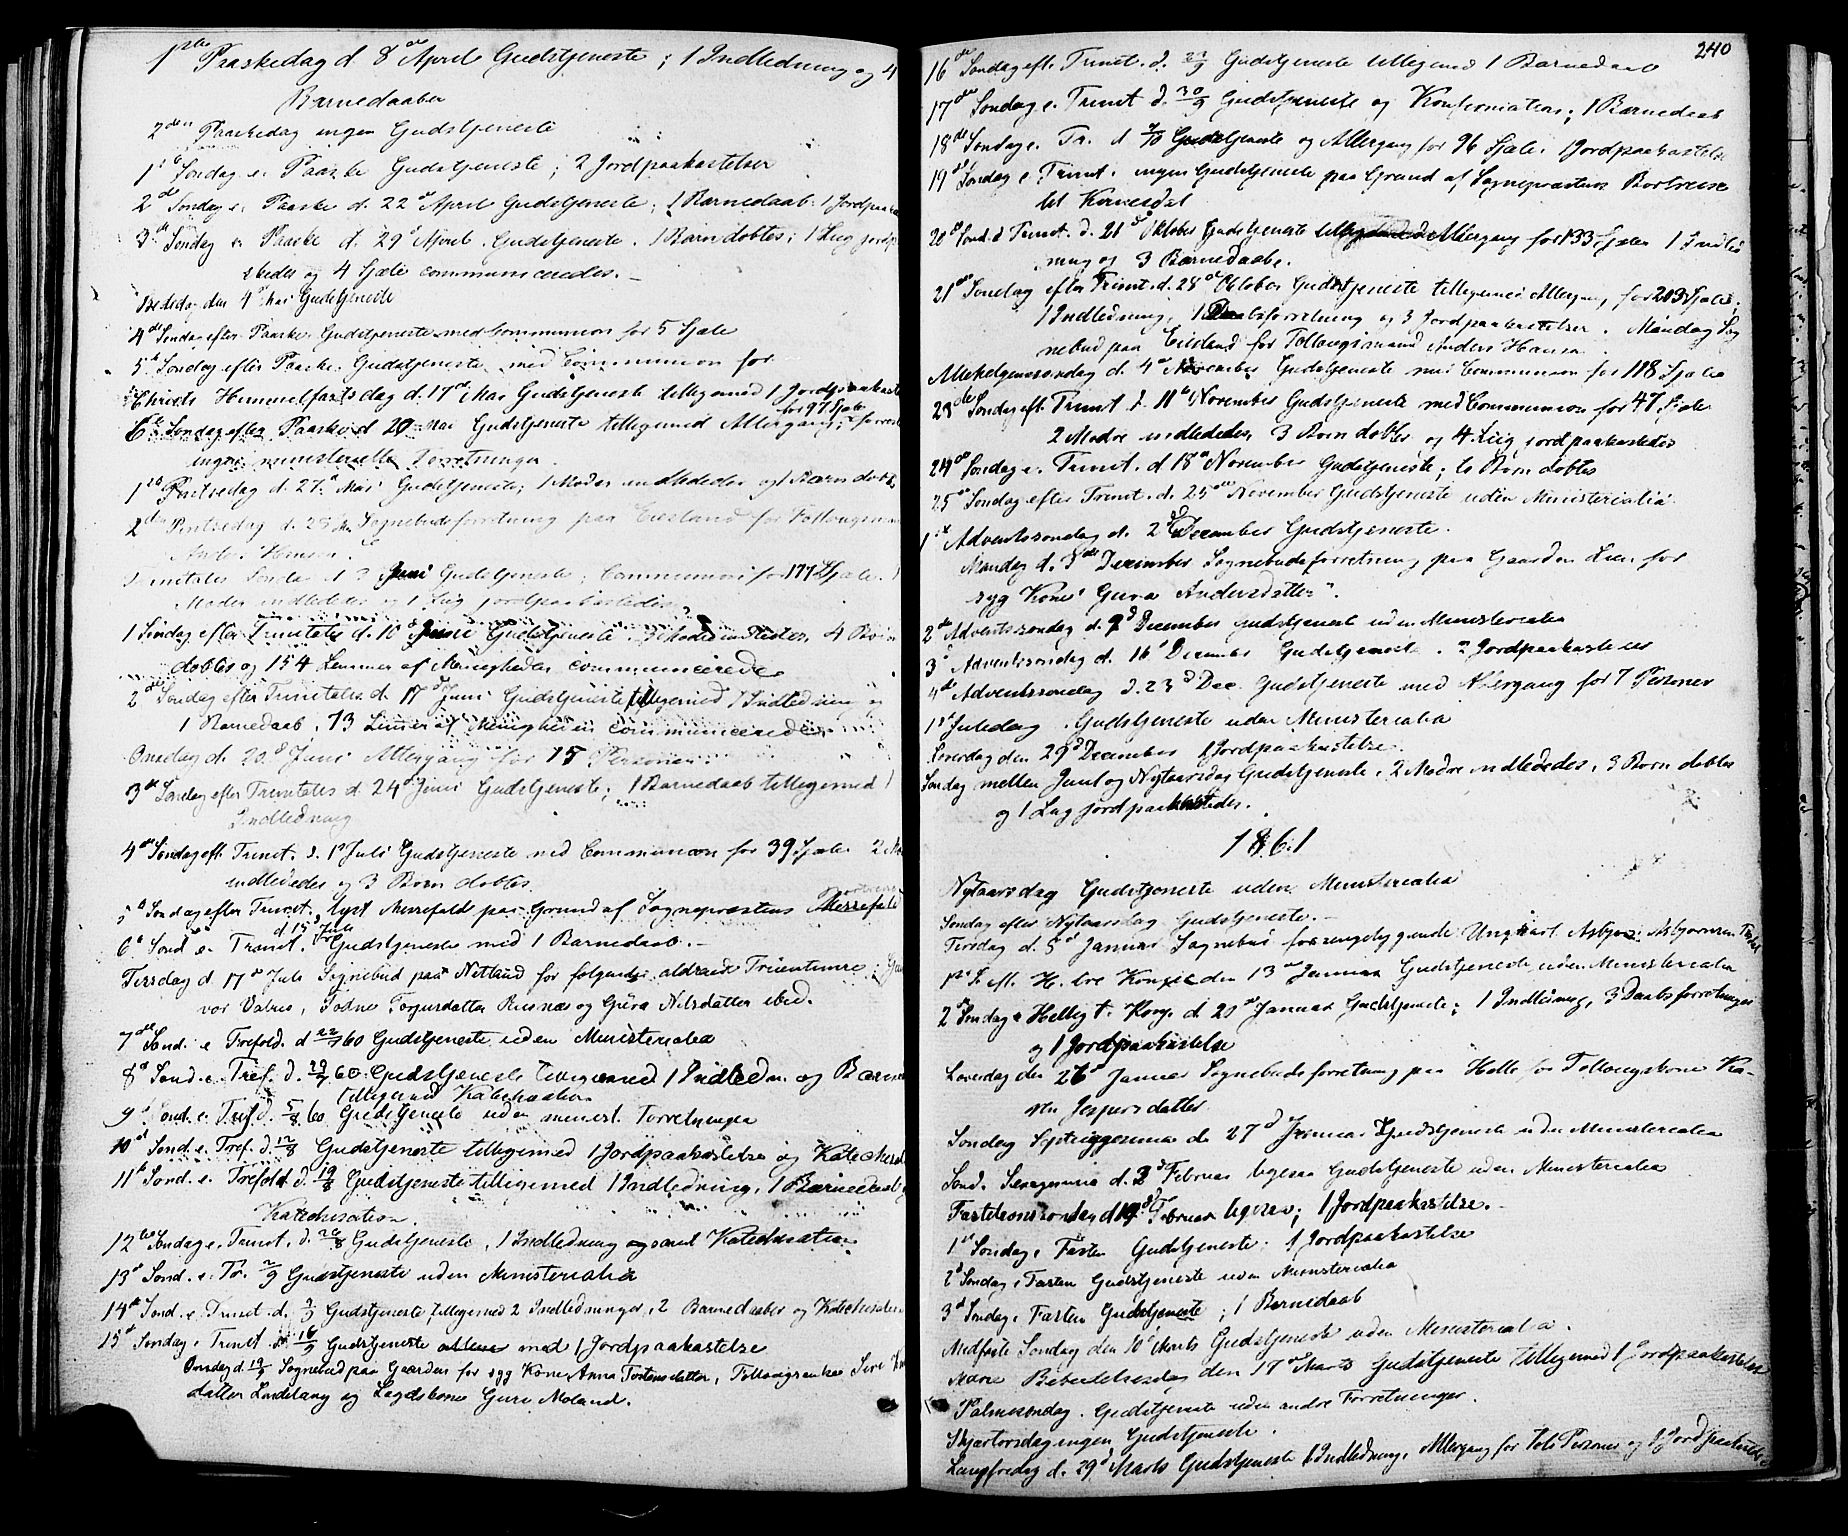 1ste Paaskedag d. 8de April Gudstjeneste; 1 Indledning og 4
Barnedaaber
2den Paaskedag ingen Gudstjeneste
1ste Søndag e. Paaske Gudstjeneste; 2 Jordpaakastelser
2de Søndag e. Paaske d. 22d April Gudstjeneste; 1 Barnedaab. 1 Jordpaaka
3die Søndag e. Paaske d. 29d April. Gudstjeneste. 1 Barn døbtes; 1 Liig jordp
stedes og 4 Sjæle communiceredes.
Bededag den 4de Mai Gudstjeneste
4de Søndag efter Paaske Gudstjeneste med Communion for 5 Sjæle
5te Søndag efter Paaske Gudstjeneste med Communion for
Christi Himmelfartsdag d. 17de Mai Gudstjeneste tilligemed 1 Jordpaakaste
for 97 Sjæle
6te Søndag efter Paaske d. 20 Mai Gudstjeneste tilligemed Altergang,
ingen ministerielle Forretninger.
1ste Pintsedag d. 27de Mai Gudstjeneste; 1 Moder indlededes og 1 Barn døbt
2den Pintsedag d. 28 Sognebudsforretning paa Eiesland for Follaugsmand
Hansen.
Trinitatis Søndag d. 3 Juni Gudstjeneste; Communion for 177 Sjæle. 1
Moder indlededes og 1 Liig jordpaakastedes
1 Søndag efter Trinitatis d. 10d Juni Gudstjeneste. 4 Børn
døbtes og 154 Lemmer af Menigheden communicerede
2den Søndag efter Trinitatis d. 17d Juni Gudstjeneste tilligemed 1 Indledning og
1 Barnedaab, 73 Lemmer af Menigheden communicerede
Onsdag d. 20d Juni Altergang for 15 Personer
3die Søndag efter Trinitatis d. 24d Juni Gudstjeneste; 1 Barnedaab tilligemed 1
Indledning
4de Søndag eft. Trinit. d. 1ste Juli Gudstjeneste med Communion for 39 Sjæle 2 M
indlededes og 3 Børn døbtes.
5te Søndag efter Trinit. lyst Messefald paa Grund af Sognepræstens
d. 15 Juli
6te Sønd. e. Trinit. Gudstjeneste med 1 Barnedaab.
Tirsdag d. 17de Juli Sognebud paa Netland for følgende aldrende
og Gura Nilsdatter ibid.
7de Sønd. e. Trefold. d. 22/7 60 Gudstjeneste uden Ministerialia
8de Sønd. e. Tref. d. 29/7 60 Gudstjeneste tilligemed 1 Indledn. og Barne
tilligemed Katechisation
9d Sønd. e. Tref. d. 5/8 60 Gudstjeneste uden minist. Forretninger
10d Sønd. e. Tref. d. 12/8 Gudstjeneste tilligemed 1 Jordpaakastelse og Katechisat
11te Sønd. e. Trefold. d. 19/8 Gudstjeneste tilligemed 1 Indledning, 1 Barnedaab
Katechisation.
12te Søndag e. Trinit. d. 26/8 Gudstjeneste, 1 Indledning og samt Katechisation
13d Sønd. e. Tr. 2/9 Gudstjeneste uden Ministerialia
14de Sønd. e. Trinit. d. 9/9 Gudstjeneste, tilligemed 2 Indledninger, 2 Barnedaaber og Katechisation
15d Søndag e. Trinit. d. 16/9 Gudstjeneste med 1 Jordpaakastelse
Onsdag d. 19/9 Sognebud paa Gaarden for syg Kone Anna Torstensdatter,
datter Lindeland og Lægdskone Guri Moland.
240
16de Søndag eft. Trinit. d. 23/9 Gudstjeneste tilligemed 1 Barnedaab
17de Søndag e. Trinit d. 30/9 Gudstjeneste og Konfirmation; 1 Barnedaab
18de Søndag e. Tr. d. 7/10 Gudstjeneste og Altergang for 96 Sjæle. 1 Jordpaakastelse
19d Søndag e. Trinit. ingen Gudstjeneste paa Grund af Sognepræstens Bortreise
til
20d Sønd. e. Trinit. d. 21d Oktober Gudstjeneste Altergang for 133 Sjæle 1 Indled
ning og 3 Barnedaabe.
21de Søndag efter Trinit. d. 28de Oktober Gudstjeneste tilligemed Altergang for 203 Sjæle;
1 Indledning, 1 Daabsforretning og 3 Jordpaakastelser. Mandag Sog
nebud paa Eiesland for Follaugsmand Anders Hansen.
Allehelgenssøndag d. 4de November Gudstjeneste med Communion for 118 Sjæle
23de Søndag eft. Trinit d. 11te November Gudstjeneste med Communion for 47 Sjæle
2 Mødre indlededes, 3 Børn døbtes og 4 Liig jordpaakastedes
24de Søndag e. Trinit. d. 18de November Gudstjeneste; 6 Børn døbtes
25de Søndag efter Trinit. d. 25de November Gudstjeneste uden Ministerialia.
1ste Adventssøndag d. 2d December Gudstjeneste.
Mandag d. 3die December Sognebudsforretning paa Gaarden Lien for
syg Kone Gura Andersdatter.
2den Adventssøndag d. 9d December Gudstjeneste uden Ministerialia
3d Adventssøndag d. 16d December Gudstjeneste. 2 Jordpaakastelser
4de Adventssøndag d. 23d Dec. Gudstjeneste med Altergang for 7 Personer
1ste Juledag. Gudstjeneste uden Ministerialia
Løverdag den 29d December 1 Jordpaakastelse.
Søndag mellem Juul og Nytaarsdag Gudstjeneste, 2 Mødre indlededes, 3 Børn døbtes
og 1 Liig jordpaakastedes.
1861
Nytaarsdag Gudstjeneste uden Ministerialia
Søndag efter Nytaarsdag Gudstjeneste.
d. 5d Januar Sognebud for sengeliggende Ungkarl Asbjørn Asbjørnsen
1ste S. eft. H. tre Konger den 13de Januar Gudstjeneste uden Ministerialia
2d Søndag e. Hellig t. Kong. d. 20de Januar Gudstjeneste; 1 Indledning, 3 Daabsforretninger
og 1 Jordpaakastelse
Løverdag den 26de Januar Sognebudsforretning paa Helle for Follaugskone Ka-
ren Jespersdatter
Søndag Septuagesima d. 27d Januar Gudstjeneste uden Ministerialia
Sønd. Sexagesima d. 3d Februar ligesaa Gudstjeneste uden Ministerialia
Fastelavnssøndag d. 10d Februar ligesaa; 1 Jordpaakastelse.
1ste Søndag i Fasten Gudstjeneste; 1 Jordpaakastelse
2d Søndag i Fasten Gudstjeneste uden Ministerialia
3d Søndag i Fasten Gudstjeneste; 1 Barnedaab
Midfaste Søndag den 10d Marts Gudstjeneste uden Ministerialia.
Mariæ Bebudelsesdag den 17de Marts Gudstjeneste tilligemed 1 Jordpaakastelse
Palmesøndag. Gudstjeneste uden andre Forretninger.
Skjærtorsdag ingen Gudstjeneste.
Langfredag d. 29d Marts Gudstjeneste 1 Indledning, Altergang for tolv Personer og 1 Jordpaakastelse